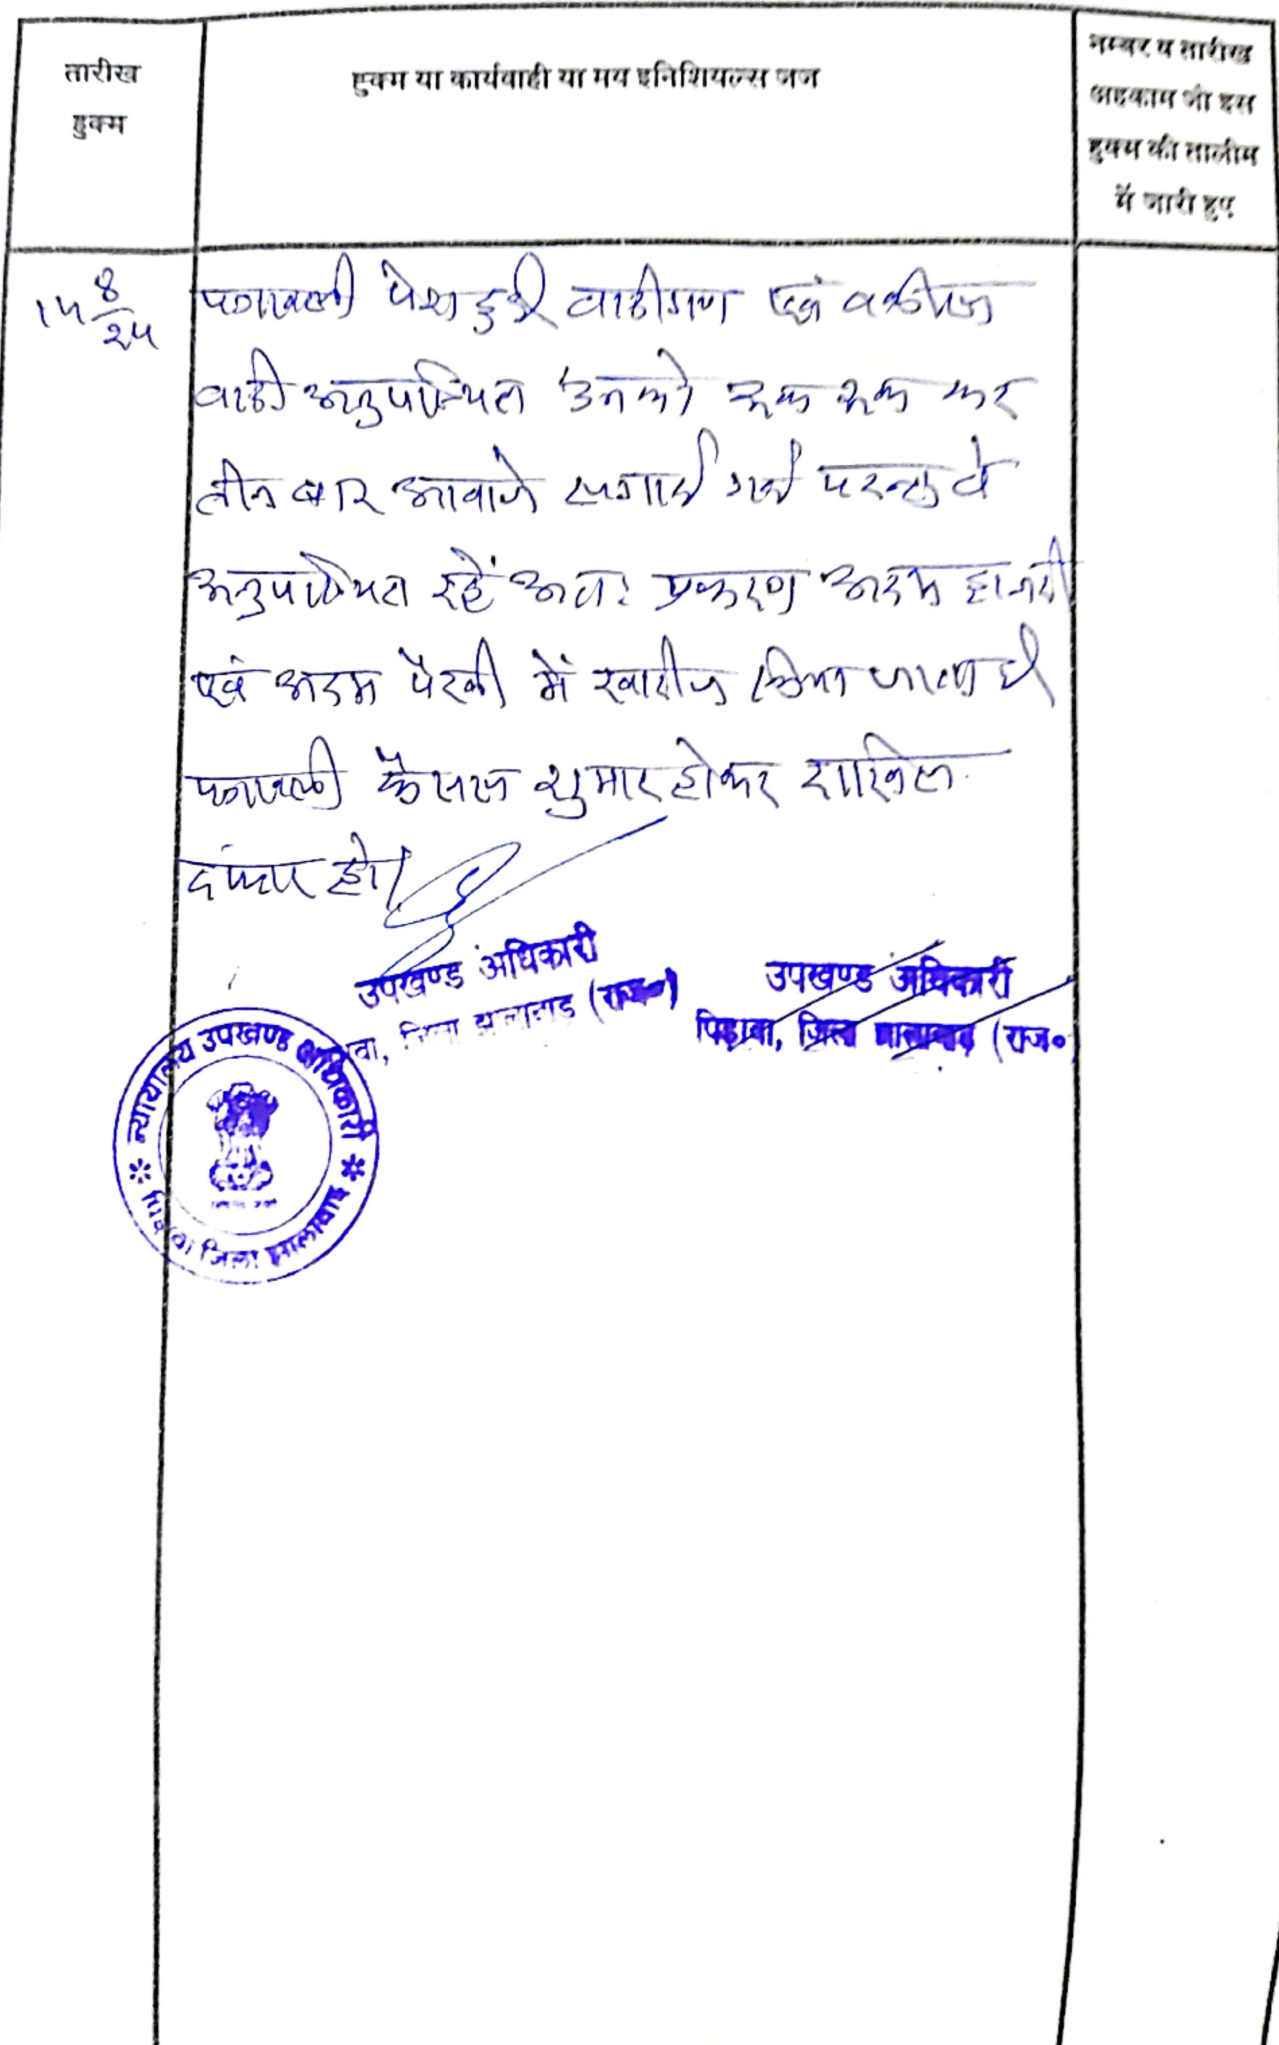 तारीख
हुक्म
हुक्म या कार्यवाही या मय इनिशियल्स जज
नम्बर व तारीख
अहकाम जो इस
हुक्म की तालीम
में जारी हुए
14 8/24
पत्रावली पेश हुई वादीगण एवं वकील
वादी अनुपस्थित उनको रूक रूक कर
तीन बार आवाजे लगाई गई परन्तु वे
अनुपस्थित रहें अतः प्रकरण अदम हाजरी
एवं अदम पैरवी में खारीज किया जाता है
पत्रावली फैसल शुमार होकर दाखिल
दफ्तर हो।
उपखण्ड अधिकारी
जिला झालावाड (राज०)
उपखण्ड अधिकारी
पिडावा, जिला झालावाड (राज०
न्यायालय उपखण्ड अधिकारी
पिडावा जिला झालावाड